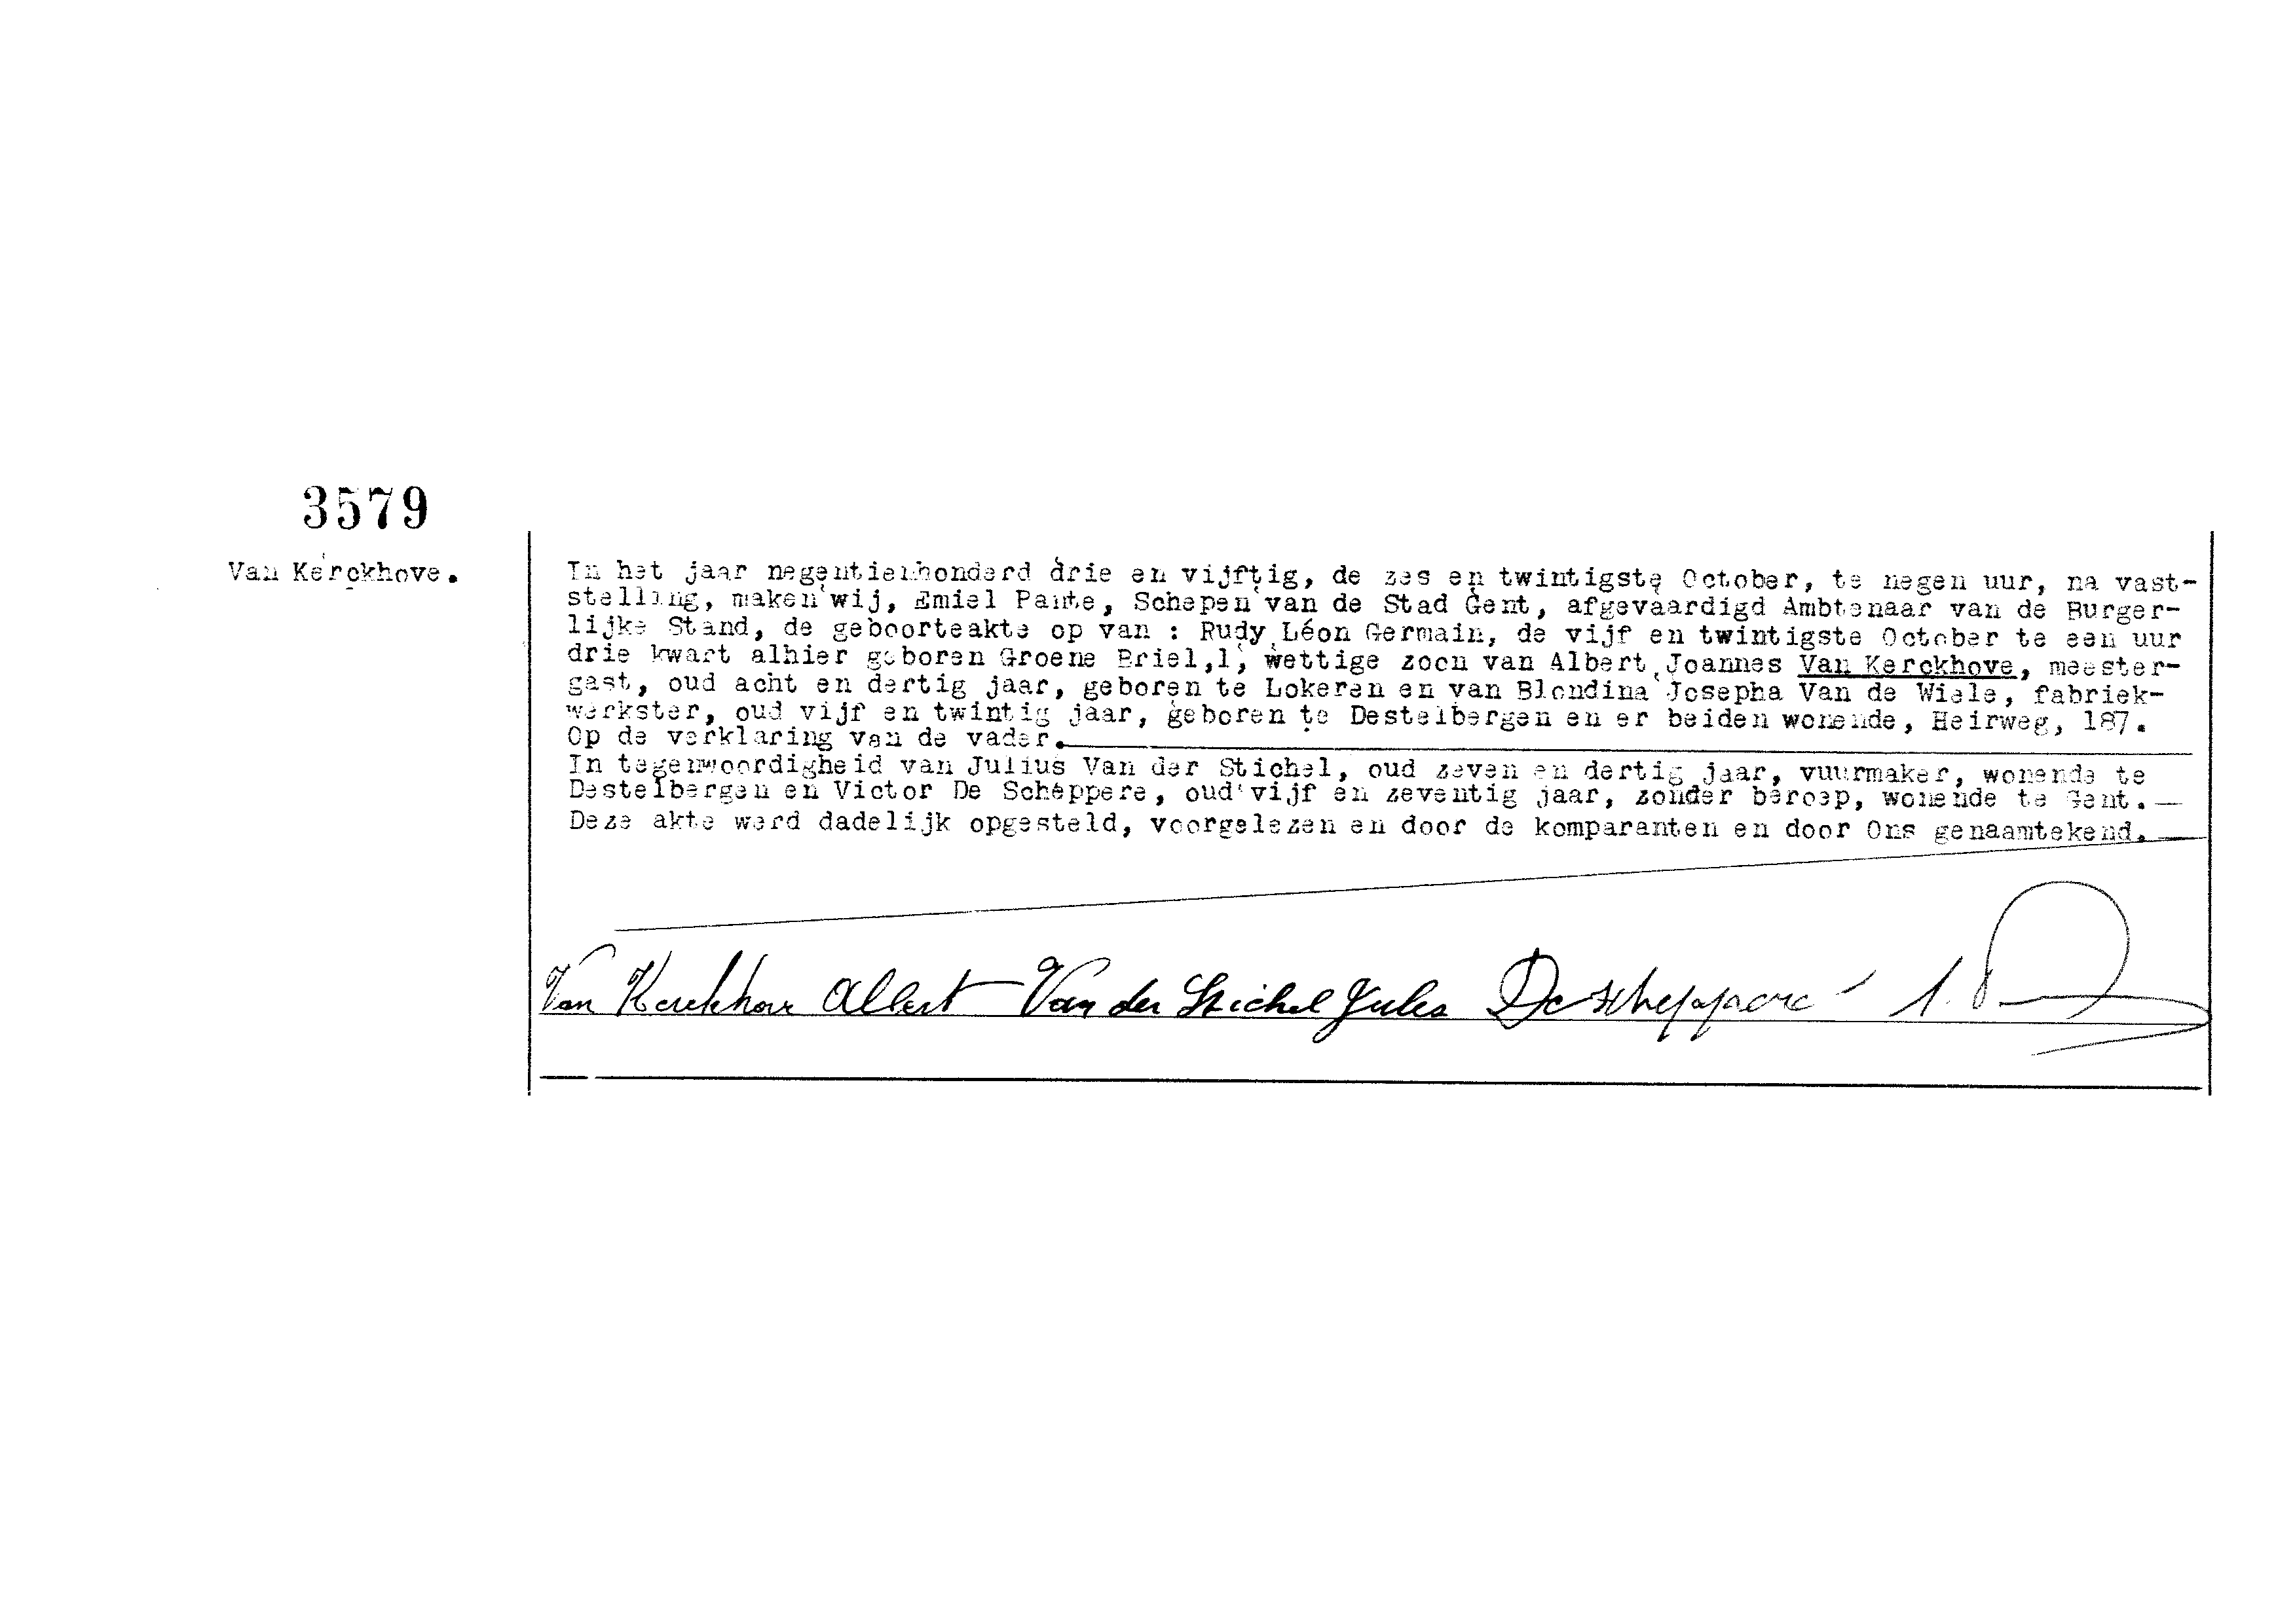 3579
Van Kerckhove.
In het jaar negentienhonderd drie en vijftig, de zes en twintigste October, te negen uur, na vast-
stelling, maken wij, Emiel Pante, Schepen van de Stad Gent, afgevaardigd Ambtenaar van de Burger-
lijke Stand, de geboorteakte op van : Rudy Léon Germain, de vijf en twintigste October te een uur
drie kwart alhier geboren Groene Briel,1, wettige zoon van Albert Joannes Van Kerckhove, meester-
gast, oud acht en dertig jaar, geboren te Lokeren en van Blondina Josepha Van de Wiele, fabriek-
werkster, oud vijf en twintig jaar, geboren te Destelbergen en er beiden wonende, Heirweg, 187.
Op de verklaring van de vader.
In tegenwoordigheid van Julius Van der Stichel, oud zeven en dertig jaar, vuurmaker, wonende te
Destelbergen en Victor De Scheppere, oud vijf en zeventig jaar, zonder beroep, wonende te Gent.
Deze akte werd dadelijk opgesteld, voorgelezen en door de komparanten en door Ons genaamtekend.
Van Kerckhove Albert Van der Stichel Jules De Scheppere